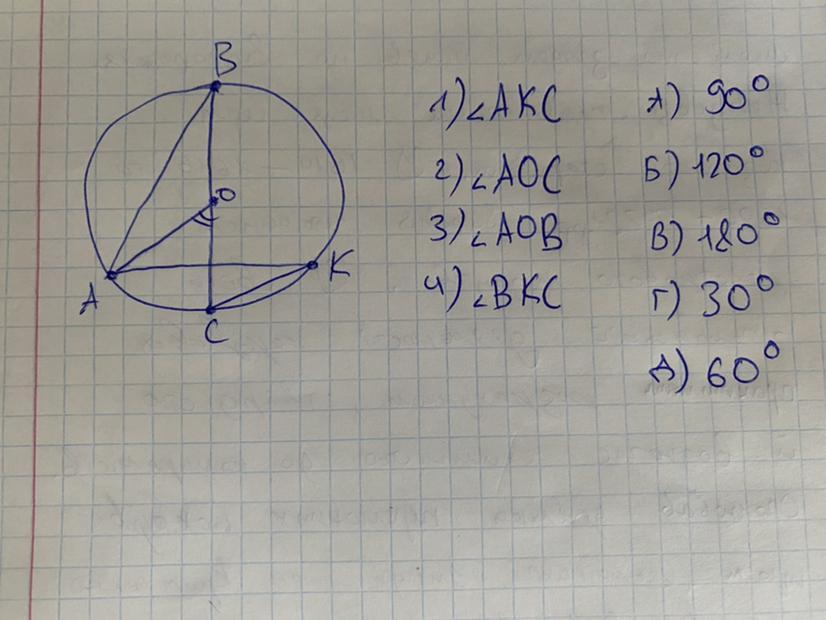 B
O
A
K
C
1) ∠AKC А) 90°
2) ∠AOC Б) 120°
3) ∠AOB В) 180°
4) ∠BKC Г) 30°
Д) 60°